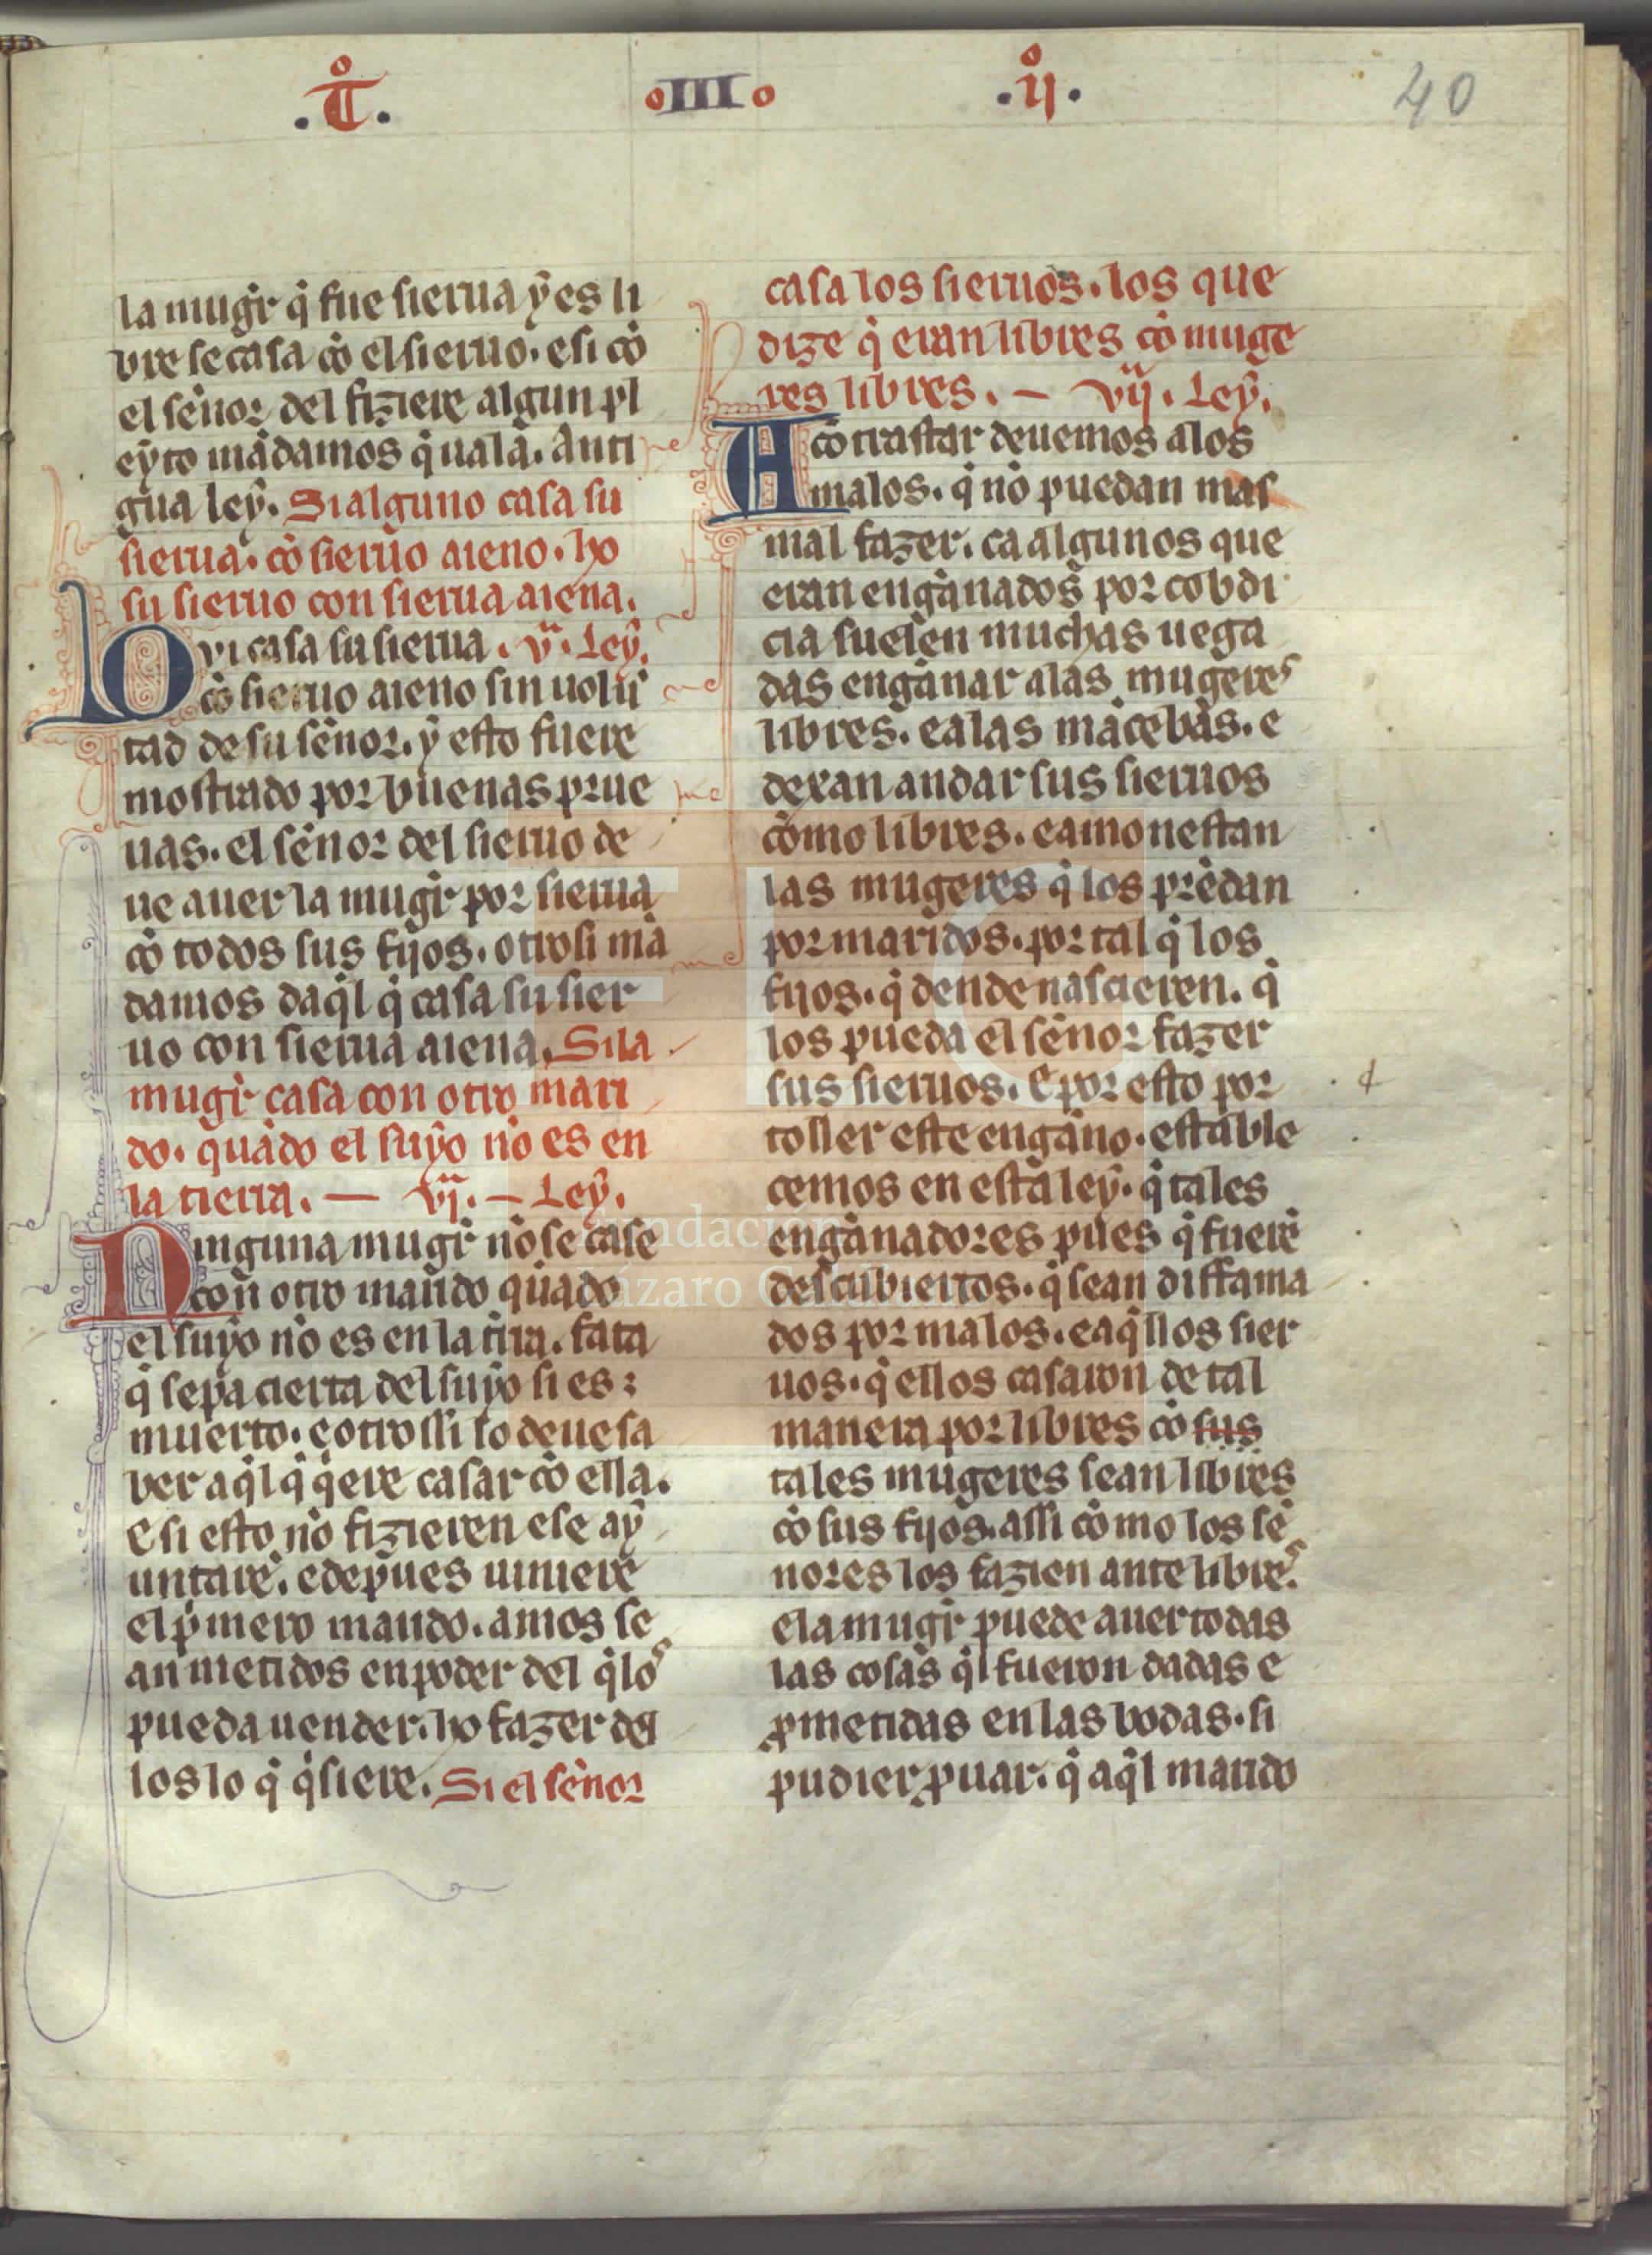 .T̊. III .ij̊. 40
la mugr̉ q̉ fue sierua ẏ es li
bre se casa cõ el sieruo. e si cõ
el señor del fiziere algun pl
eẏto mãdamos q̉ uala. Anti
gua leẏ. Si alguno casa su
sierua. cõ sieruo aieno. ho
su sieruo con sierua aiena.
vi casa su sierua. vª. Leẏ.
cõ sieruo aieno sin uolũ
tad de su señor. ẏ esto fuere
mostrado por buenas prue
uas. el señor del sieruo de
ue auer la mugr̉ por sierua
cõ todos sus fijos. otrosi mã
damos daq̉l q̉ casa su sier
uo con sierua aiena. Si la
mugr̉ casa con otro mari
do. quãdo el suẏo nõ es en
la tierra. — vjª. — Leẏ.
Ninguna mugr̉ nõ se case
con otro marido quãdo
el suẏo nõ es en la tirra. fata
q̉ sepa cierta del suẏo si es:
muerto. e otrossi lo deue sa
ber aq̉l q̉ q̉ere casar cõ ella.
E si esto nõ fizieren e se aẏ
untarẽ. e depues uiniere
el p̉mero marido. amos se
an metidos en poder del q̉ los
pueda uender. ho fazer del
los lo q̉ q̉siere. Si el señor
casa los sieruos. los que
dize q̉ eran libres cõ muge
res libres. — vijª. Leẏ.
A cõtrastar deuemos alos
malos. q̉ nõ puedan mas
mal fazer. ca algunos que
eran engañados por cobdi
cia suelen muchas uega
das engañar alas mugeres
libres. e alas mãcebas. e
dexan andar sus sieruos
como libres. e amonestan
las mugeres q̉ los prẽdan
por maridos. por tal q̉ los
fijos. q̉ dende nascieren. q̉
los pueda el señor fazer
sus sieruos. E por esto por
toller este engaño. estable
cemos en esta leẏ. q̉ tales
engañadores pues q̉ fuerẽ
descubiertos. q̉ sean diffama
dos por malos. e aq̉llos sier
uos. q̉ ellos casaron de tal
manera por libres cõ sus
tales mugeres sean libres
cõ sus fijos. assi como los se
ñores los fazien ante libres.
e la mugr̉ puede auer todas
las cosas q̉l fueron dadas e
ꝓmetidas en las bodas. si
pudier ꝓuar. q̉ aq̉l marido
Fundación
Lázaro